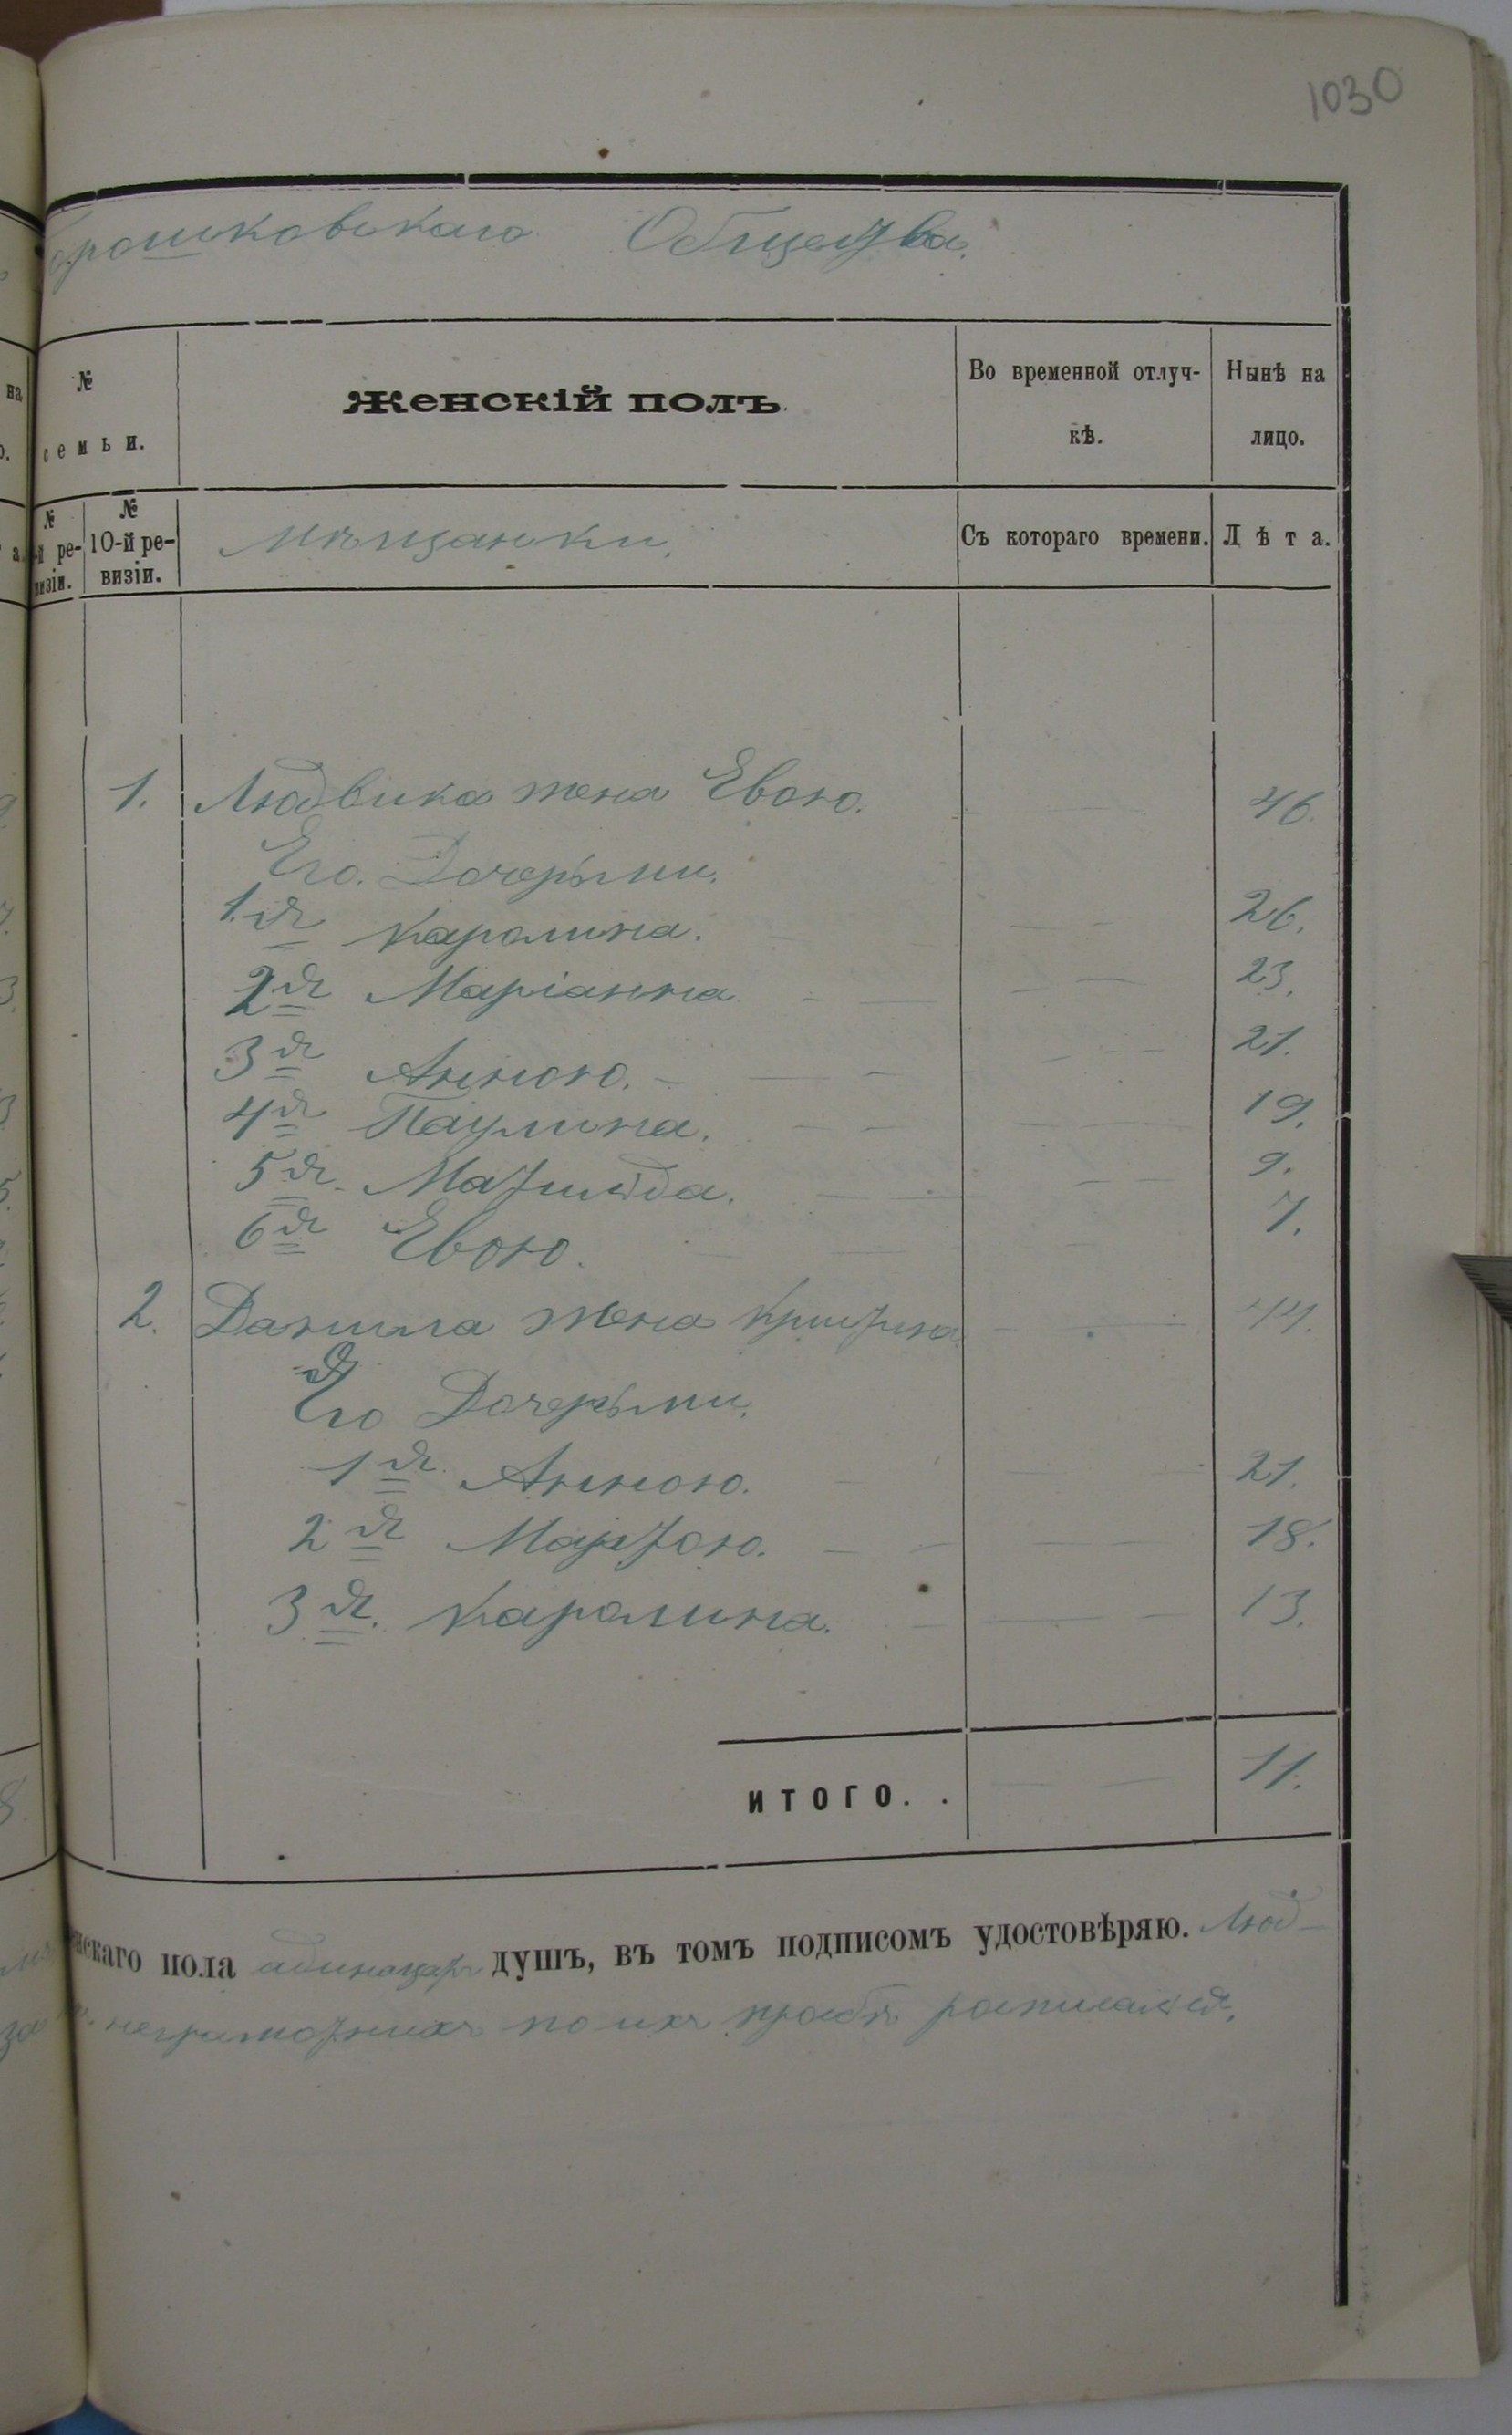 1030
Общества.
№ семьи.
Женскій полъ.
Во временной отлучкѣ.
Нынѣ на лицо.
№ -й ревизіи.
№ 10-й ревизіи.
Мѣщанки.
Съ котораго времени.
Лѣта.
1. Людвика жена Евою. 46.
Его. Дочерьми.
1.я Каролина. 26.
2я Маріанна 23.
3я Анною. 21.
4я Паулина. 19.
5я Матильда. 9.
6я Евою. 7.
2. Данила жена Кристина 44.
Его Дочерьми.
1я Анною. 21.
2я Мартою. 18.
3я. Каролина. 13.
ИТОГО. . 11.
нскаго пола адинацать душъ, въ томъ подписомъ удостовѣряю. Люд-
неграмотныхъ по ихъ прозбѣ росписался.